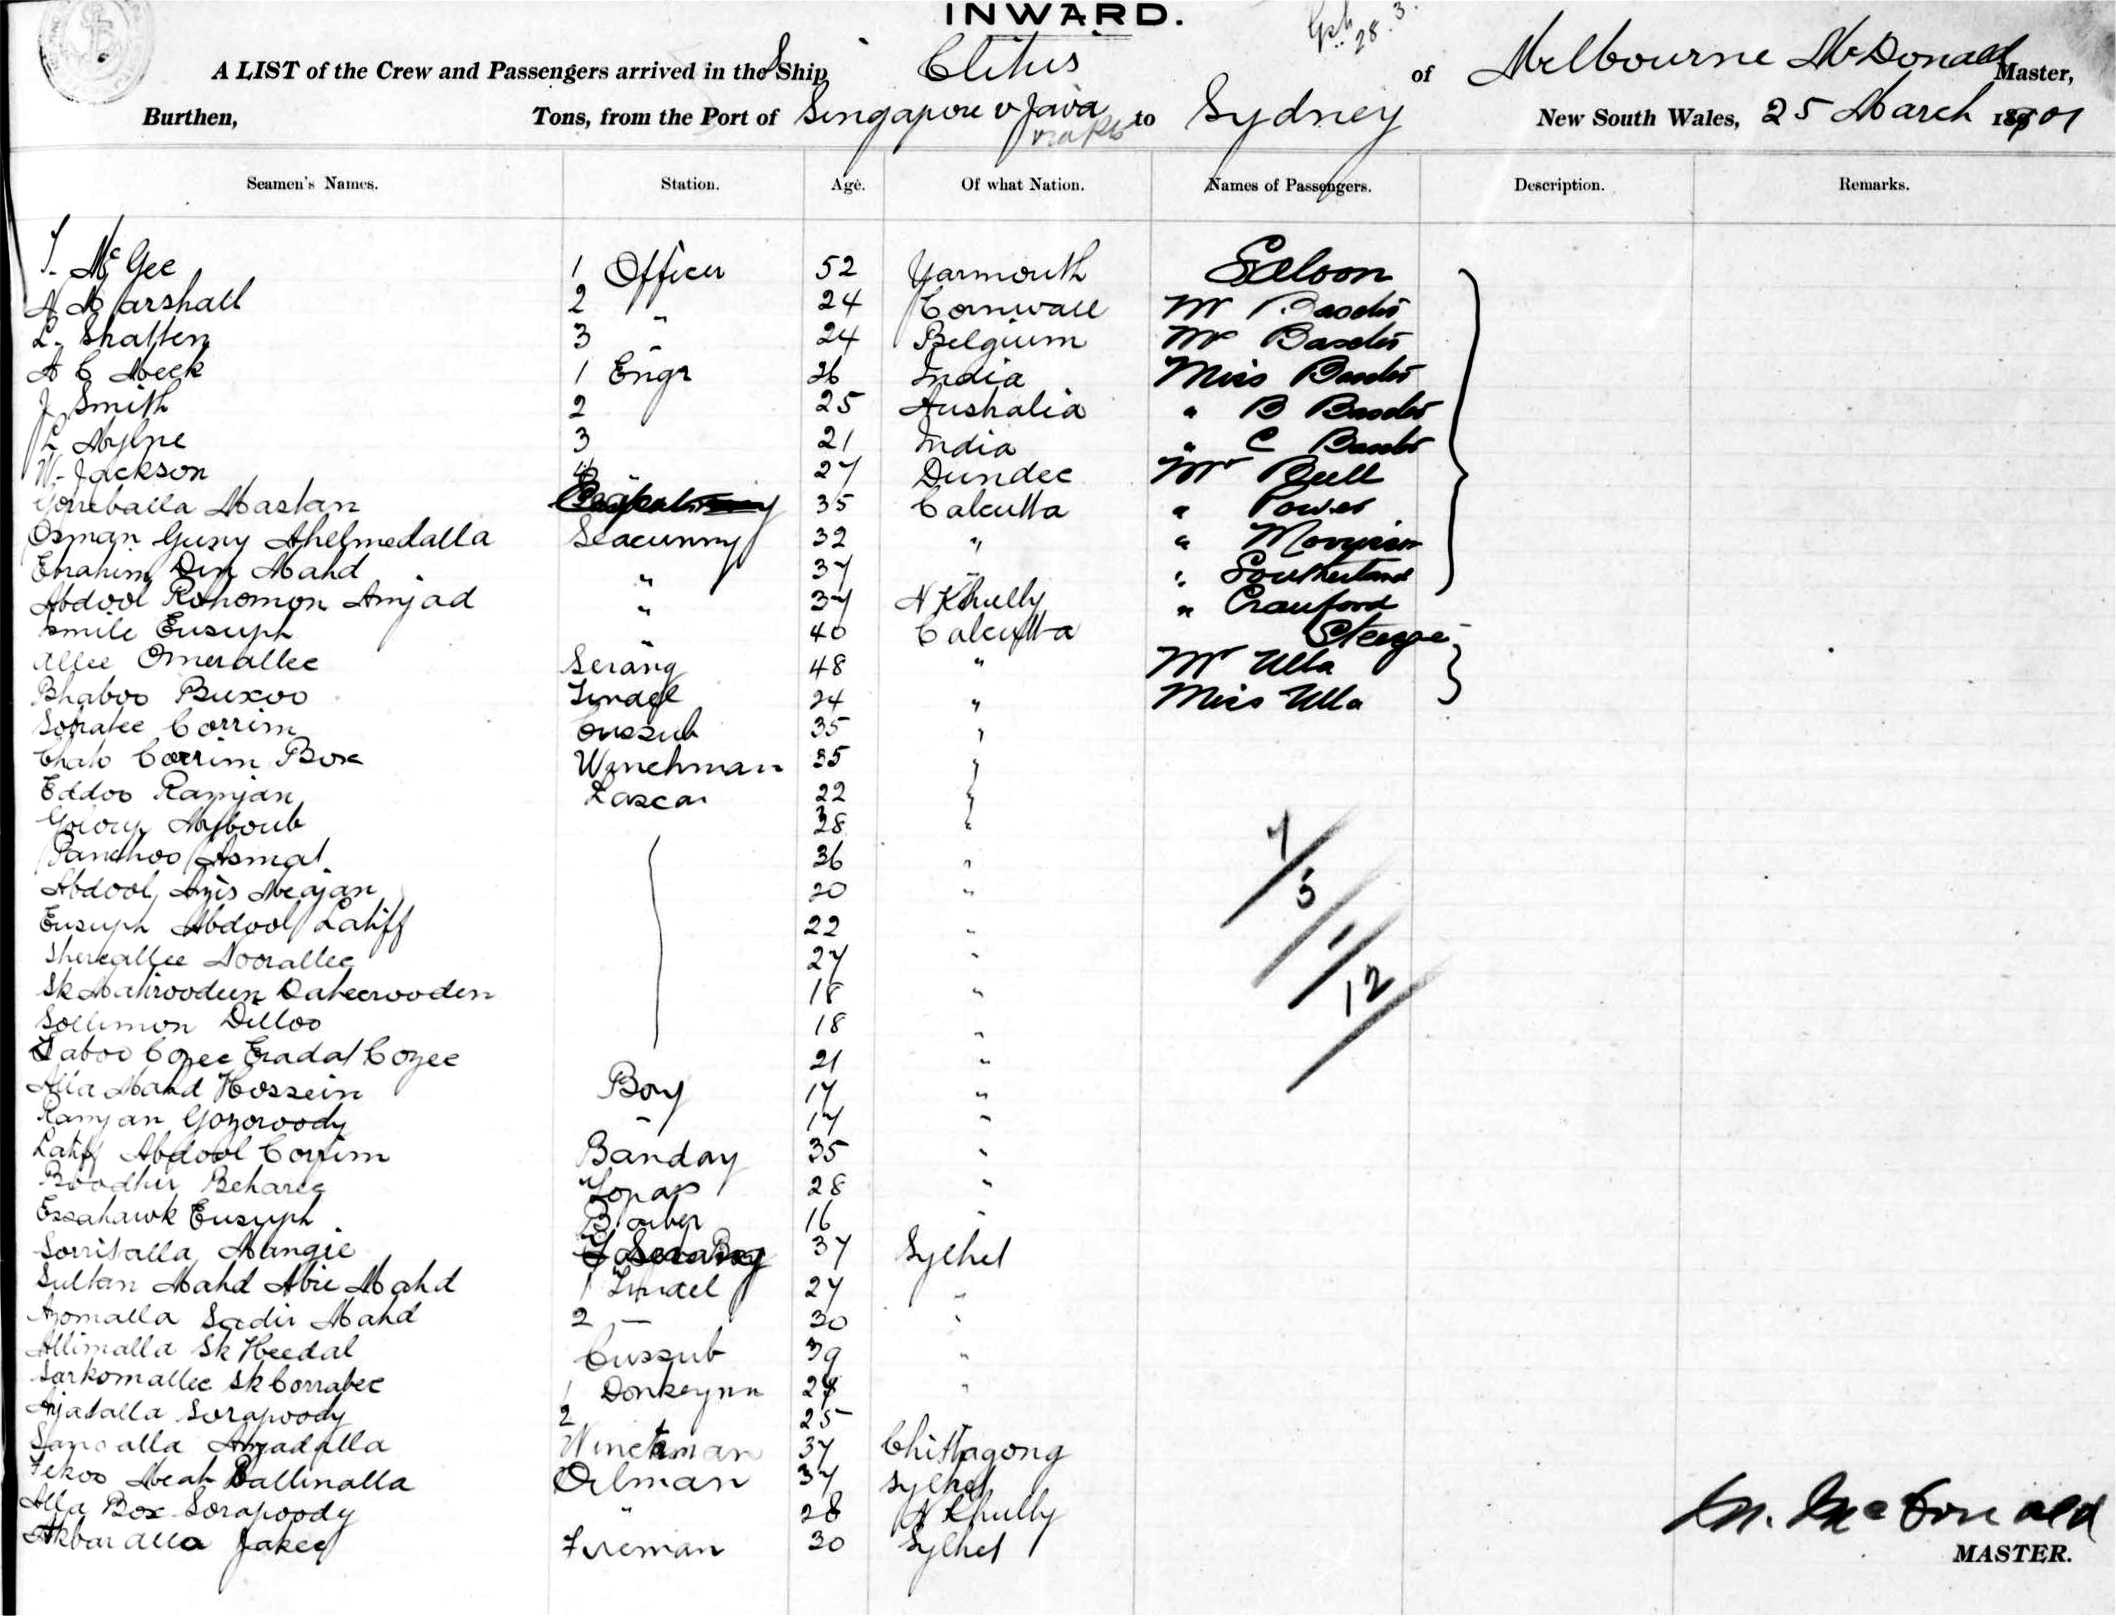 INWARD.
28 3
A LIST of the Crew and Passengers arrived in the S Ship Clitus of Melbourne McDonald Master,
Burthen, Tons, from the Port of Singapore v Java to Sydney New South Wales, 25 March 1901
Seamen's Names. Station. Age. Of what Nation. Names of Passengers. Description. Remarks.
McGee 1 Officer 52 Yarmouth Saloon
A Marshall 2 " 24 Cornwall Mr
L. Shatten 3 " 24 Belgium
A C Meck 1 Engr 26 India Miss
J Smith 2 25 Australia " B
L Mylne 3 21 India " C
W. Jackson 4 27 Dundee Mr Bull
Mastan 35 Calcutta " Power
Osman Guny Ahelmedalla Seacunny 32 " " Morrison
Ebrahim Din Mahd " 37 "
Abdool Rohomon Amjad " 37 N Khully " Crauford
Esmile Eusuph " 40 Calcutta Steerage
Allee Omerallee Serang 48 " Mr Ulla
Bhaboo Buxoo Tindel 24 " Miss Ulla
Corrim Cussub 35 "
Corrim Box Winchman 35 "
Eddoo Ramjan Lascar 22 "
Myboub 28 "
Panchoo Asmat 36 "
Abdool Azis Meajan 20 "
Eusuph Abdool Latiff 22 "
Shereallee Noorallee 27 "
Sk Mahroodeen Daheerooden 18 "
Sollimon Dilloo 18 "
Cozee Eradat Cozee 21 "
Mahd Hossein Boy 17 "
Ramjan Gozoroody " 17 "
Latiff Abdool Corrim Banday 35 "
Boodhu Beharee Topas 28 "
Essahawk Eusuph 16 "
Sorritalla Mangie Serang 37 Sylhet
Sultan Mahd Abie Mahd 1 Tindel 27 "
Azomalla Sadir Mahd 2 — 30 "
Allimalla Sk Heedal Cussub 39 "
Sarkomallee Sk Corrabee 1 Donkeymn "
Anjadalla Sorapoody 2 25
Amjadalla Winchman 37 Chittagong
Tekoo Meah Ballinalla Oilman 37 Sylhet
Alla Box Sorapoody " 28 N Khully
Akbar alla Jakee Fireman 30 Sylhet
7/5/1/12
M. McDonald
MASTER.